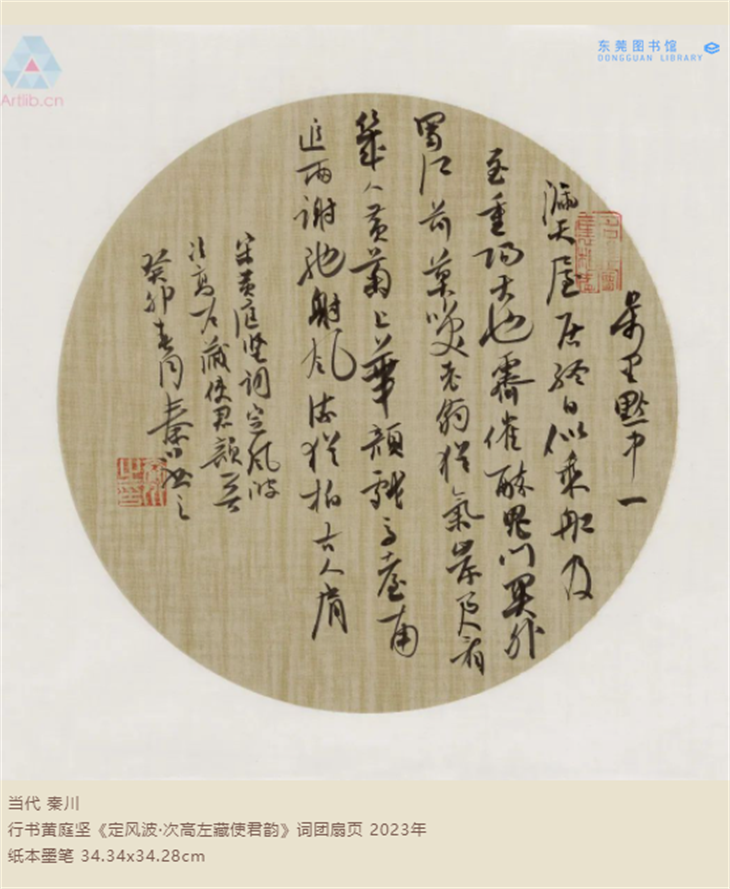 Artlib.cn
东莞图书馆
DONGGUAN LIBRARY
萬里黔中一
漏天屋居終日似乘船及
至重陽天也霽催醉鬼門關外
蜀江前莫笑老翁猶氣岸君看
幾人黃菊上華顛戲馬臺南
追兩謝馳射風流猶拍古人肩
宋黃庭堅詞定風波
次高左藏使君韻
癸卯春月秦川
当代 秦川
行书黄庭坚《定风波·次高左藏使君韵》词团扇页 2023年
纸本墨笔 34.34x34.28cm